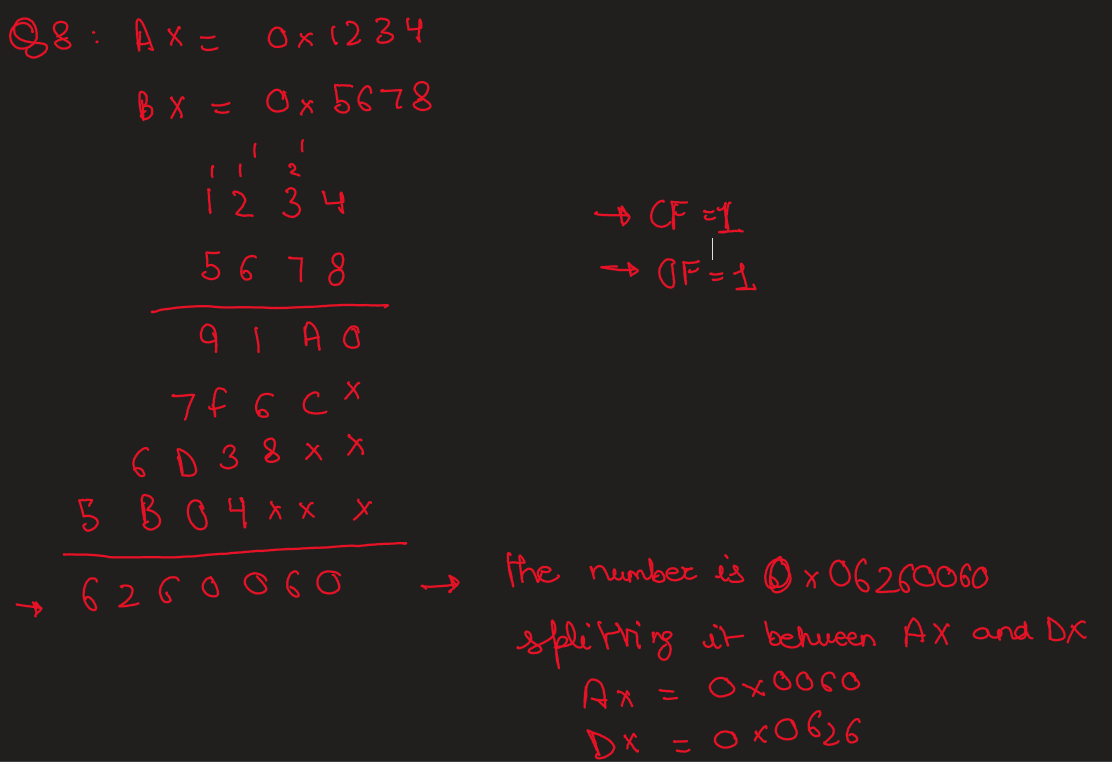 Q8: AX = 0x1234
BX = 0x5678
1 1
1 1 2
1 2 3 4
5 6 7 8
9 1 A 0
7 f 6 C x
6 D 3 8 x x
5 B 0 4 x x x
→ 6 2 6 0 0 6 0
→ CF = 1
→ OF = 1
→ the number is 0x06260060
splitting it between AX and DX
Ax = 0x0060
Dx = 0x0626